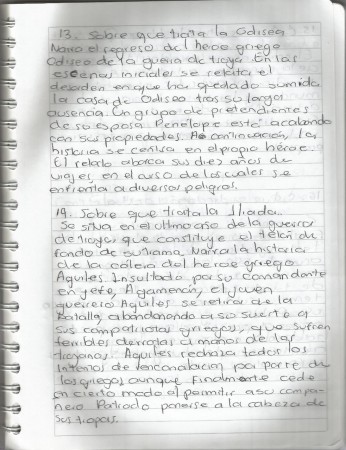 13. Sobre que trata la Odisea
Narra el regreso del heroe griego
Odiseo de la guerra de troya. En las
escenas iniciales se relata el
desorden en que ha quedado sumida
la casa de Odiseo tras su larga
ausencia. Un grupo de pretendientes
de su esposa Penelope está acabando
con sus propiedades. A continuación, la
historia se centra en el propio héroe.
El relato abarca sus diez años de
viajes, en el curso de los cuales se
enfrenta a diversos peligros.
14. Sobre que trata la Iliada.
Se situa en el ultimo año de la guerra
de troya que constituye el telón de
fondo de su trama. Narra la historia
de la colera del heroe griego
Aquiles Insultado por su comandante
en jefe, Agamenón, el joven
guerrero Aquiles se retira de la
Batalla, abandonando a su suerte a
sus compatriotas griegos, que sufren
terribles derrotas a manos de los
troyanos. Aquiles rechaza todos los
intentos de reconciliación por parte de
los griegos aunque finalmente cede
en cierto modo al permitir a su compa-
ñero Patroclo ponerse a la cabeza de
sus tropas.